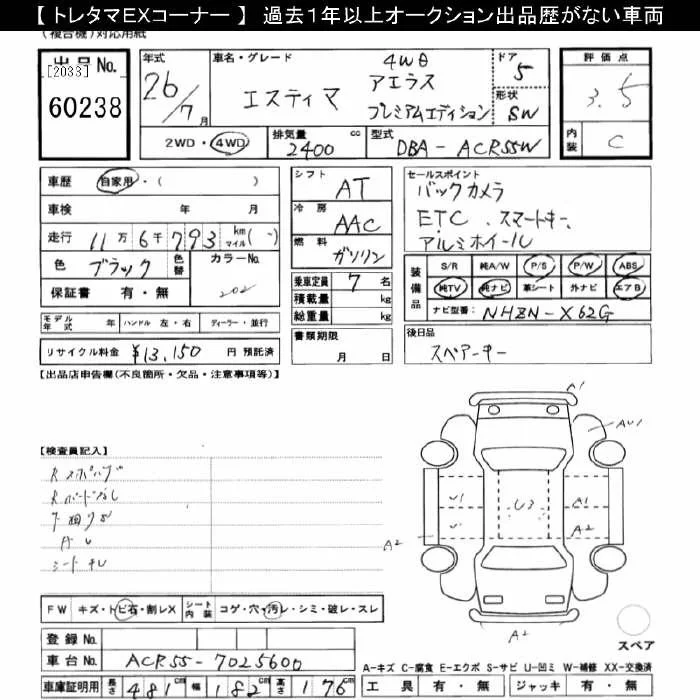 【 トレタマEXコーナー 】 過去1年以上オークション出品歴がない車両
(複合機)対応用紙
出品No.
[2033]
60238
年式 26/7月
車名・グレード
エスティマ
4WD アエラス プレミアムエディション
ドア 5
形状 SW
2WD・4WD
排気量 2400 cc
型式 DBA-ACR55W
評価点 3.5
内装 C
車歴 自家用・( )
車検 年 月
走行 11万6千793 km マイル( - )
色 ブラック 色替
カラーNo. 202
保証書 有・無
モデル年式 年 ハンドル 左・右 ディーラー・並行
リサイクル料金 ¥13,150 円 預託済
シフト AT
冷房 AAC
燃料 ガソリン
乗車定員 7 名
積載量 kg
総重量 kg
書類期限
月 日
セールスポイント
バックカメラ
ETC、スマートキー、
アルミホイール
装備品
S/R 純A/W P/S P/W ABS
純TV 純ナビ 革シート 外ナビ エアB
ナビ型番: NHZN-X62G
後日品
スペアーキー
【出品店申告欄(不良箇所・欠品・注意事項等)】
【検査員記入】
下回り
A1
AU1
U1
U3
A1
A2
A2
A2
スペア
FW キズ・トビ石・割レX
シート内装 コゲ・穴・汚レ・シミ・破レ・スレ
登録No.
車台No. ACR55-7025600
車庫証明用 長さ 481cm 幅 182cm 高さ 176cm
A-キズ C-腐食 E-エクボ S-サビ U-凹ミ W-補修 XX-交換済
工具 有・無 ジャッキ 有・無